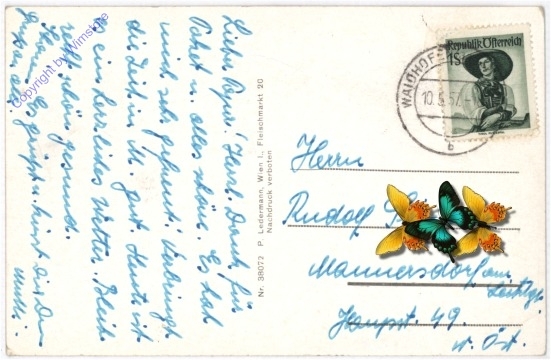 Lieber Papa! Herzl. Dank für
Packet u. alles schöne. Es hat
mich sehr gefreut.
die Zeit in M. gut. Heute ist
ein herrliches Wetter. Bleib
recht schön gesund.
Es grüßt u. küsst die
Copyright by Wimsk.de
Nr. 38072 P. Ledermann, Wien I., Fleischmarkt 20
Nachdruck verboten
Republik Österreich
1S
WAIDHOF
10.5.57.
b
Herrn
Rudolf
Mannersdorf am
Leithgb.
Hauptst. 49.
N. Öst.